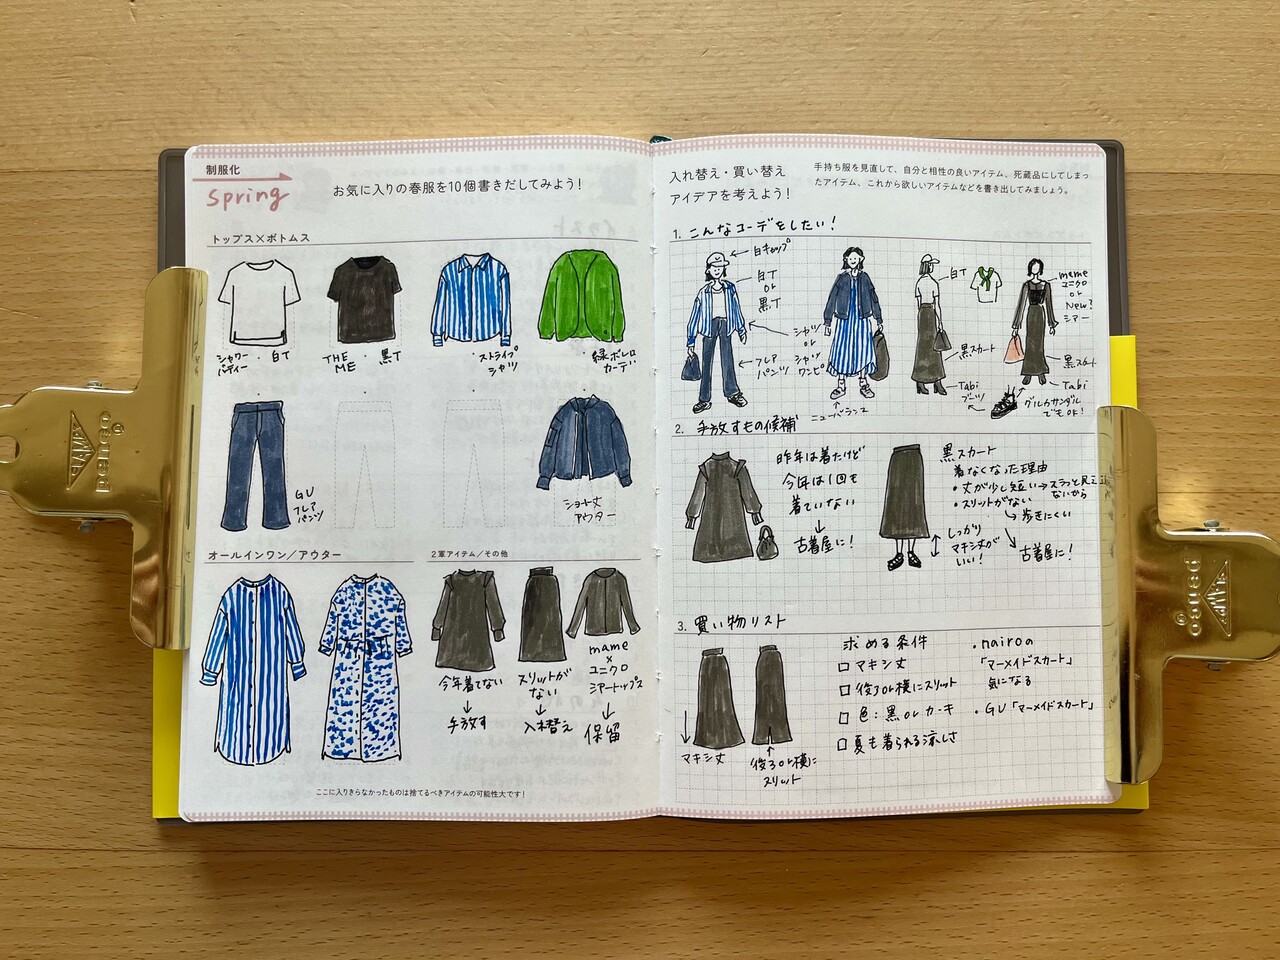 制服化
spring
お気に入りの春服を10個書きだしてみよう!
トップス×ボトムス
シャワー
パーティー
・白T
THE
ME
・黒T
・ストライプ
シャツ
・緑ボレロ
カーデ
GU
フレア
パンツ
ショート丈
アウター
オールインワン/アウター
2軍アイテム/その他
今年着てない
↓
手放す
スリットが
ない
↓
入れ替え
mame
×
ユニクロ
シアートップス
↓
保留
ここに入りきらなかったものは捨てるべきアイテムの可能性大です!
入れ替え・買い替え
アイデアを考えよう!
手持ち服を見直して、自分と相性の良いアイテム、死蔵品にしてしまっ
たアイテム、これから欲しいアイテムなどを書き出してみましょう。
1. こんなコーデをしたい!
白キャップ
白T
or
黒T
フレア
パンツ
シャツ
or
シャツ
ワンピ
ニューバランス
白T
黒スカート
Tabi
ブーツ
mame
ユニクロ
or
New?
シアー
黒スカート
Tabi
グルカサンダル
でもOK!
2. 手放すもの候補
昨年は着たけど
今年は1回も
着ていない
↓
古着屋に!
黒スカート
着なくなった理由
・丈が少し短い→スラッと見え
ないから
・スリットがない
→歩きにくい
しっかり
マキシ丈が
いい!
古着屋に!
3. 買い物リスト
マキシ丈
後ろor横に
スリット
求める条件
□マキシ丈
□後ろor横にスリット
□色:黒orカーキ
□夏も着られる涼しさ
・nairoの
「マーメイドスカート」
気になる
・GU「マーメイドスカート」
CLAMPY
penco
CLAMPY
penco